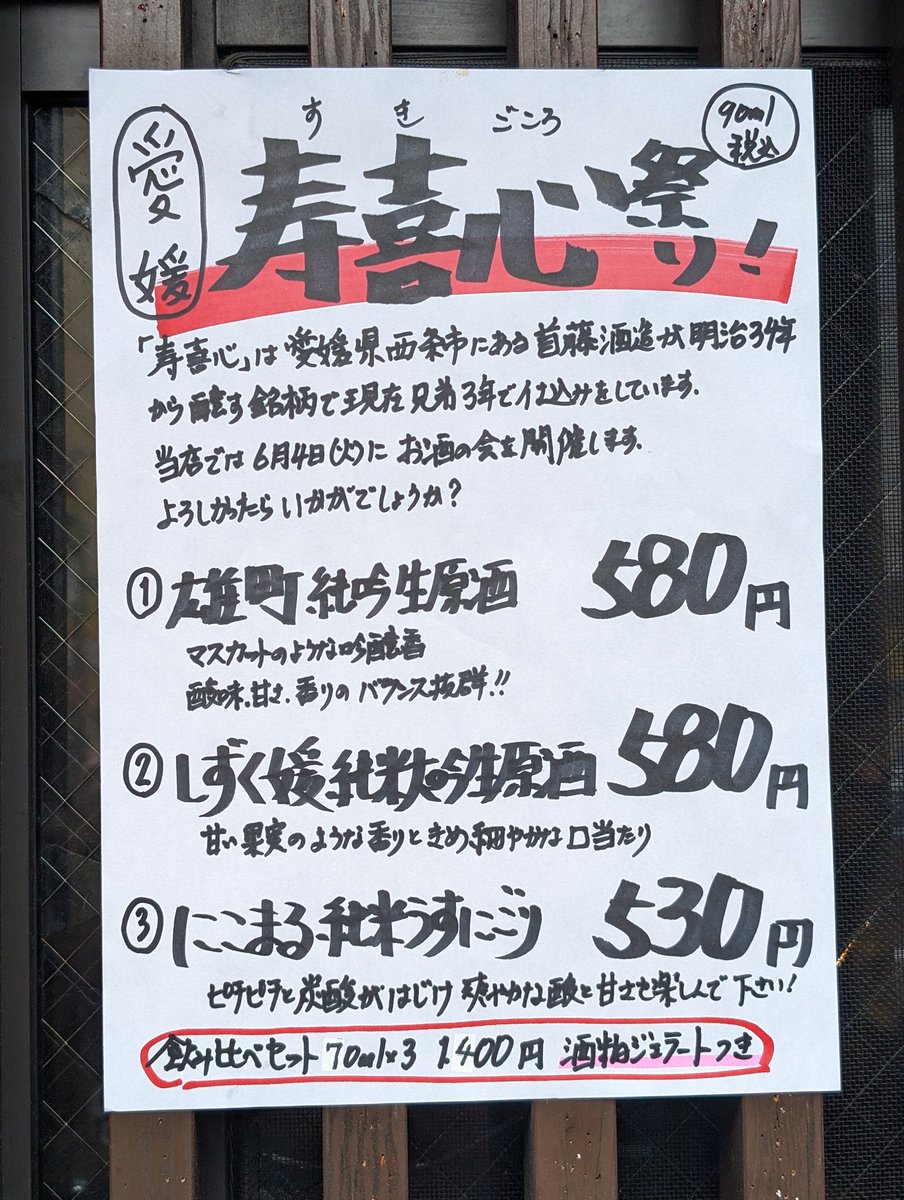 愛媛
すきごころ
90ml
税込
寿喜心祭り!
「寿喜心」は愛媛県西条市にある首藤酒造が明治34年
から醸す銘柄で現在兄弟3年で仕込みをしています.
当店では6月4日(火)にお酒の会を開催します.
よろしかったらいかがでしょうか?
① 雄町純吟生原酒 580円
マスカットのような吟醸香
酸味.甘さ.香りのバランス抜群!!
② しずく媛純米大吟生原酒 580円
甘い果実のような香りときめ細やかな口当たり
③ にこまる純米うすにごり 530円
ピチピチと炭酸がはじけ爽やかな酸と甘さを楽しんで下さい!
飲み比べセット 70ml×3 1.400円 酒粕ジェラートつき